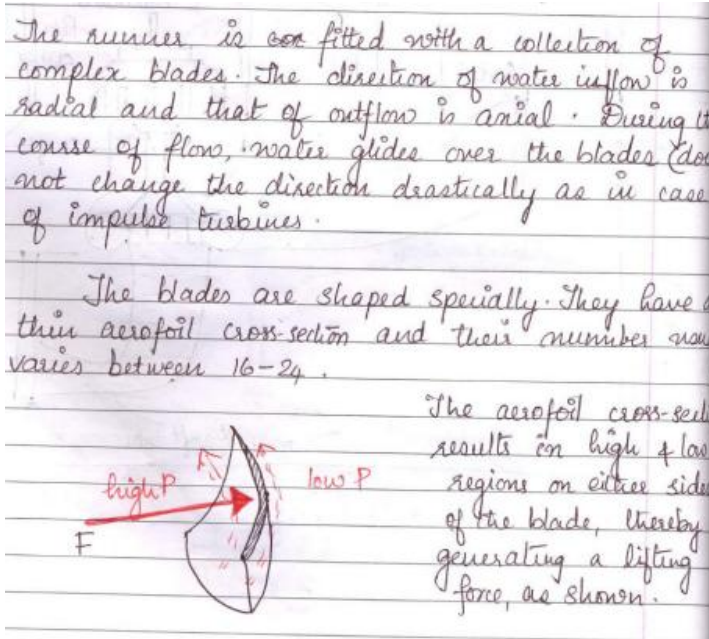 The runner is fitted with a collection of
complex blades. The direction of water inflow is
radial and that of outflow is axial. During
course of flow, water glides over the blades
not change the direction drastically as in case
of impulse turbines.
The blades are shaped specially. They have a
thin aerofoil cross-section and their number
varies between 16-24.
The aerofoil cross-sect
results in high & low
regions on either side
of the blade, thereby
generating a lifting
force, as shown.
high P
low P
F